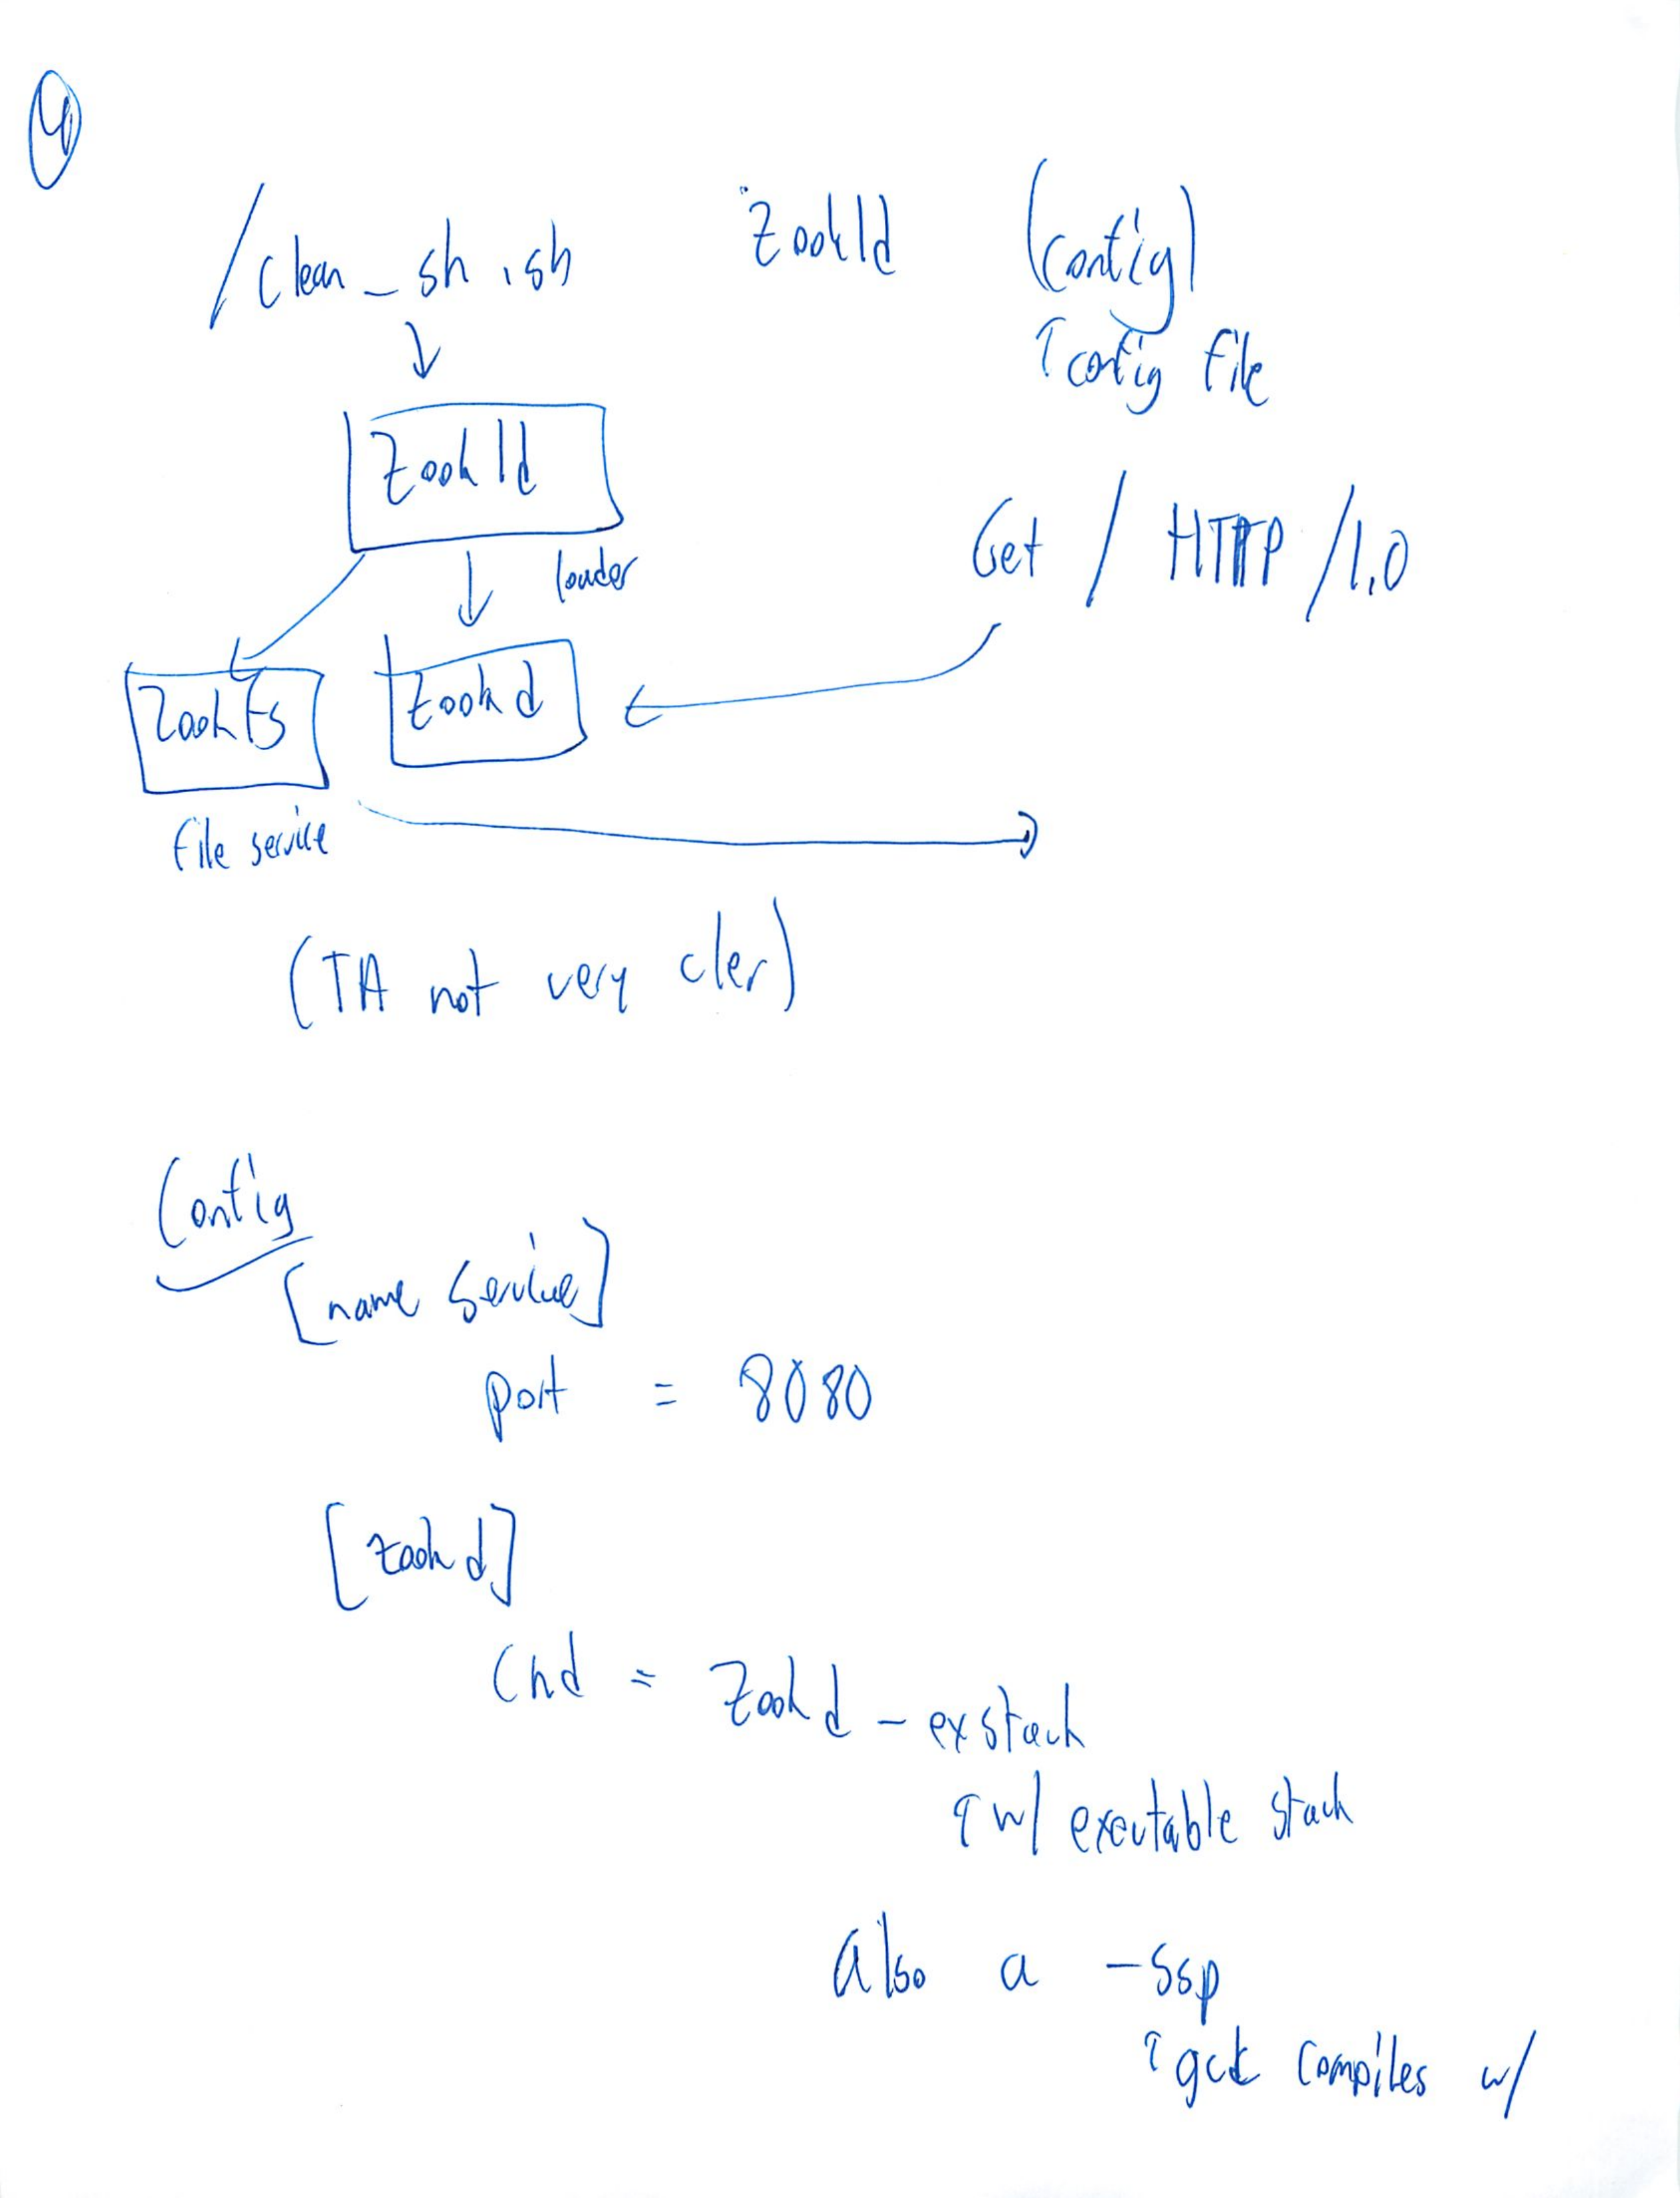 4
/clean_sh.sh zookld (config)
↑config file
↓
zookld
Get / HTTP /1.0
↓ loader
zookfs zookd
file service
(TA not very cler)
Config
[name service]
port = 8080
[zookd]
Cmd = zookd-exstack
↑ w/ executable stack
Also a -ssp
↑ gcc compiles w/